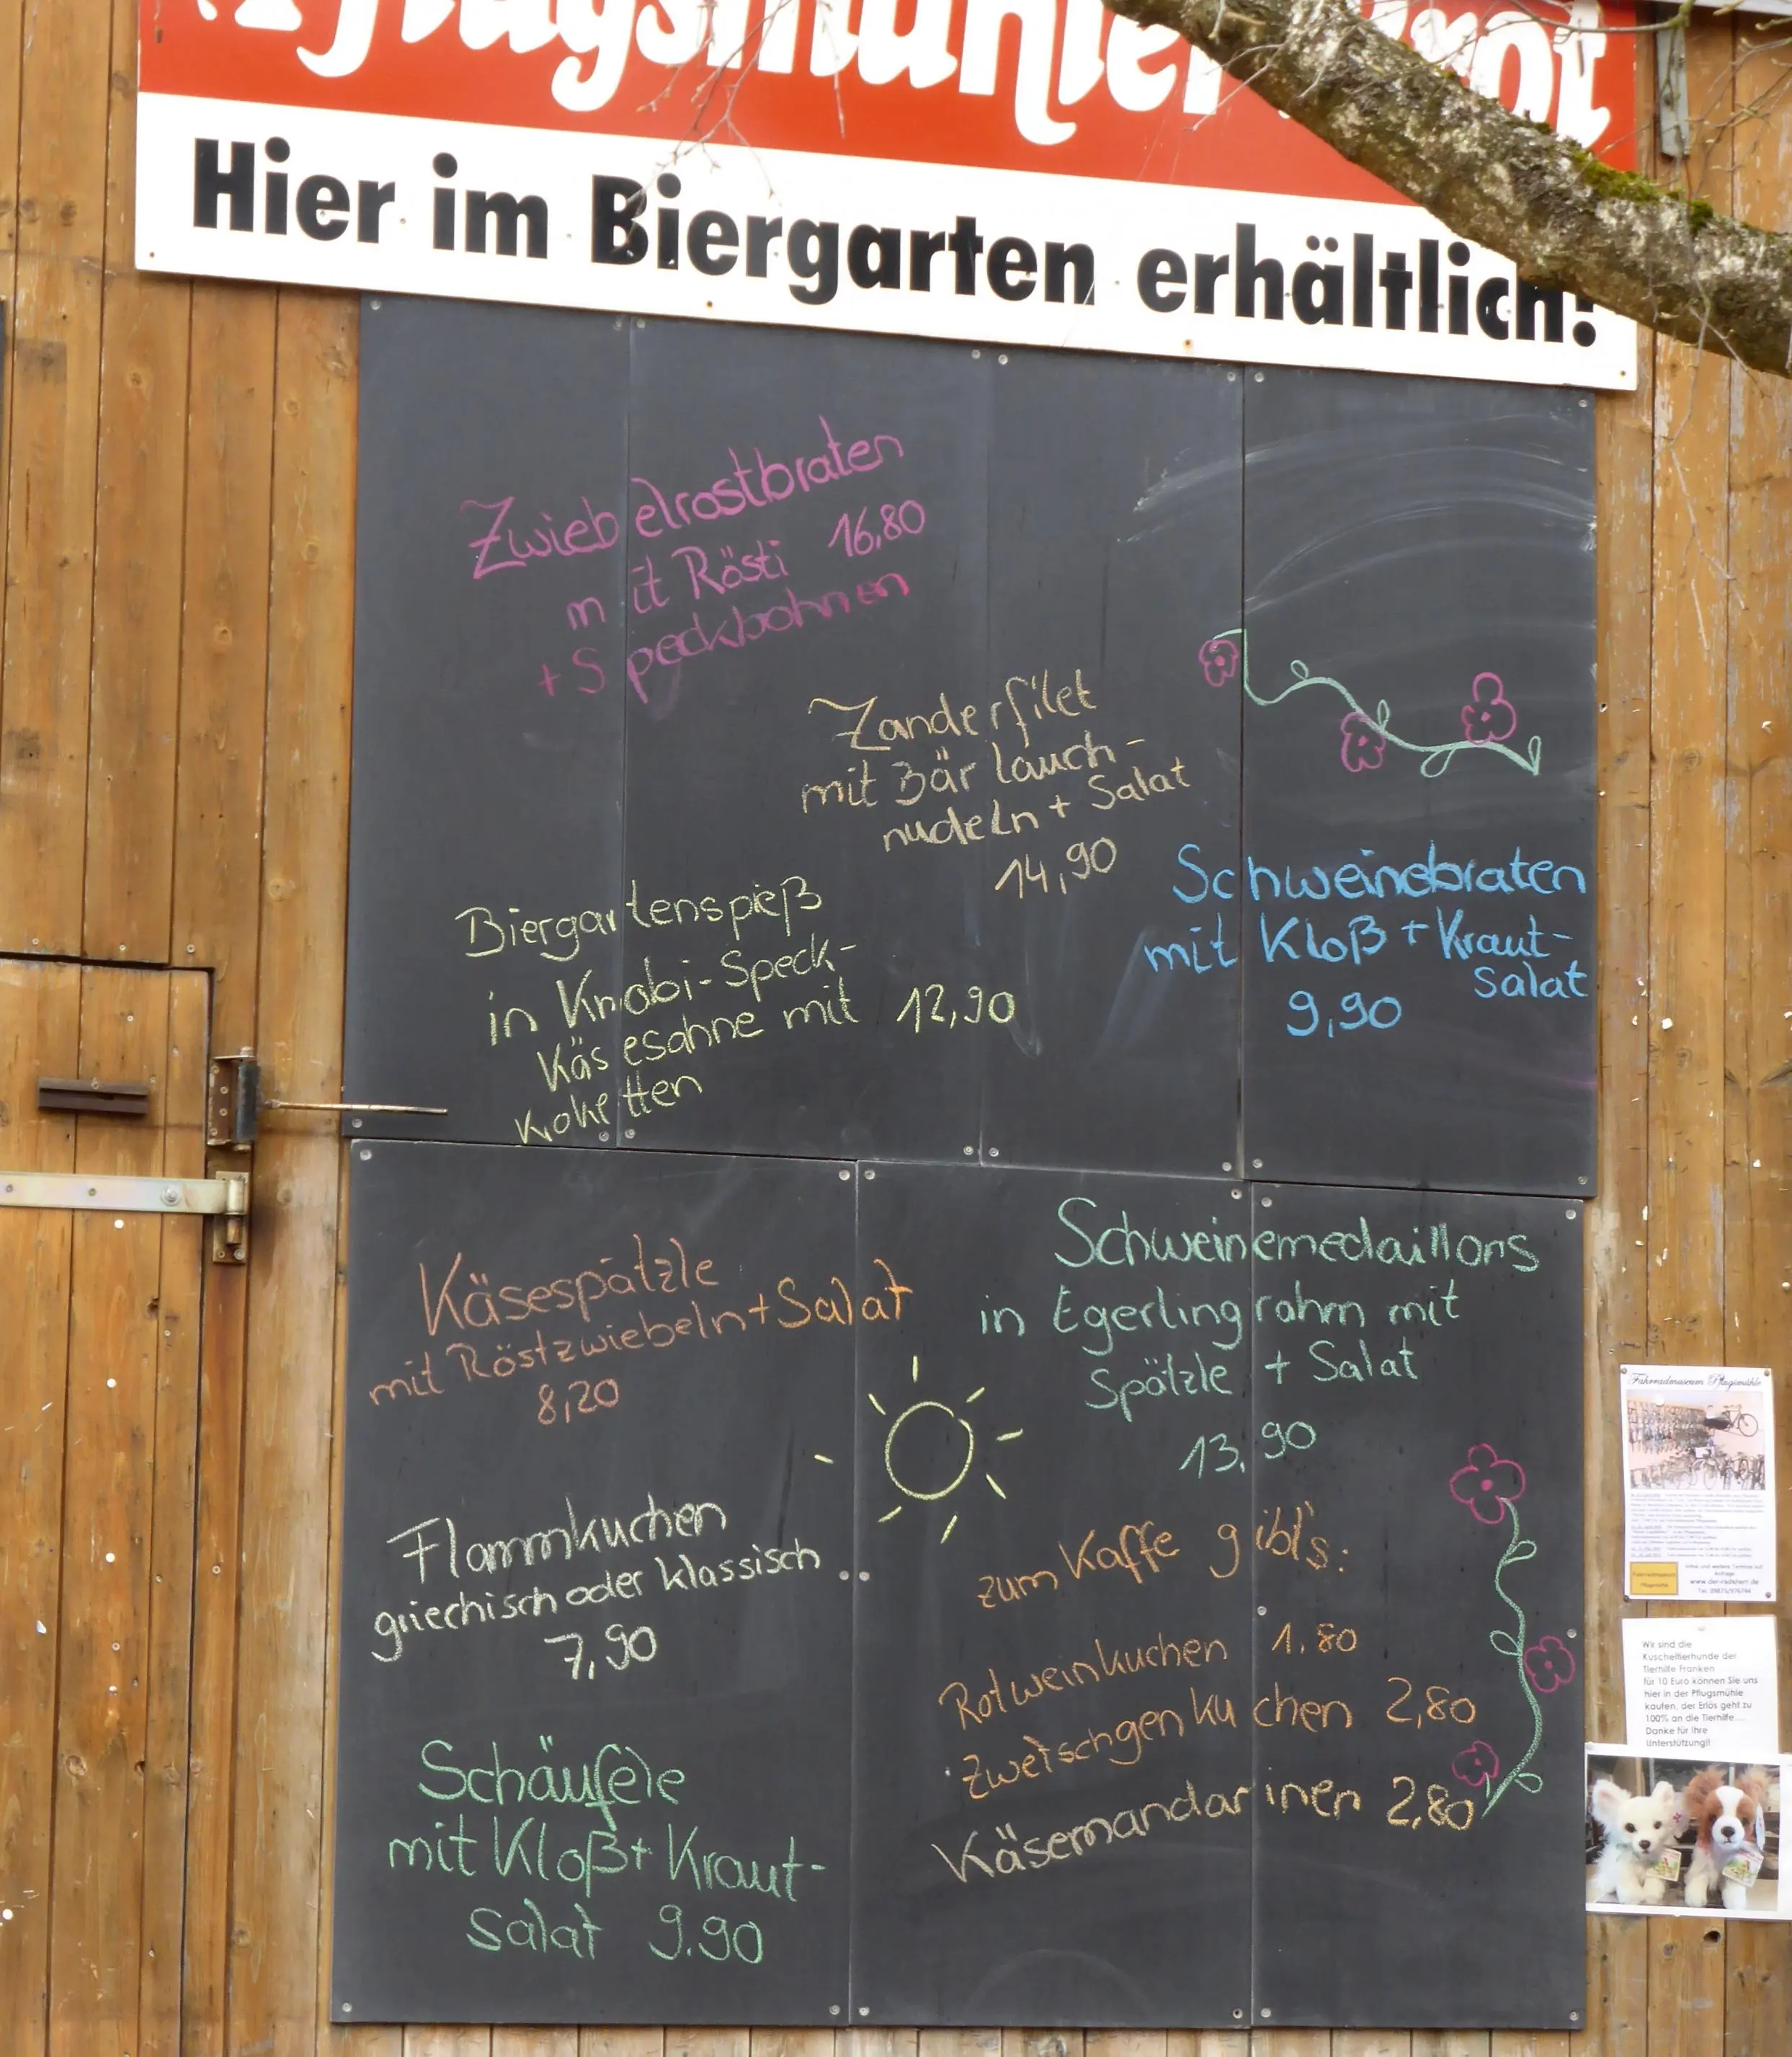 Pflugsmühler Brot
Hier im Biergarten erhältlich!
Zwiebelrostbraten
mit Rösti 16,80
+ Speckbohnen
Zanderfilet
mit Bärlauch-
nudeln + Salat
14,90
Schweinebraten
mit Kloß + Kraut-
Salat
9,90
Biergartenspieß
in Knobi-Speck-
Käsesahne mit 12,90
Kroketten
Käsespätzle
mit Röstzwiebeln + Salat
8,20
Schweinemedaillons
in Egerlingrahm mit
Spätzle + Salat
13,90
Flammkuchen
griechisch oder klassisch
7,90
zum Kaffe gibt's:
Rotweinkuchen 1.80
Zwetschgenkuchen 2,80
Käsemandarinen 2,80
Schäufele
mit Kloß + Kraut-
salat 9.90
Fahrradmuseum Pflugsmühle
www.der-radlstern.de
Wir sind die
Kuscheltierhunde der
Tierhilfe Franken
für 10 Euro können Sie uns
hier in der Pflugsmühle
kaufen, der Erlös geht zu
100% an die Tierhilfe....
Danke für Ihre
Unterstützung!!